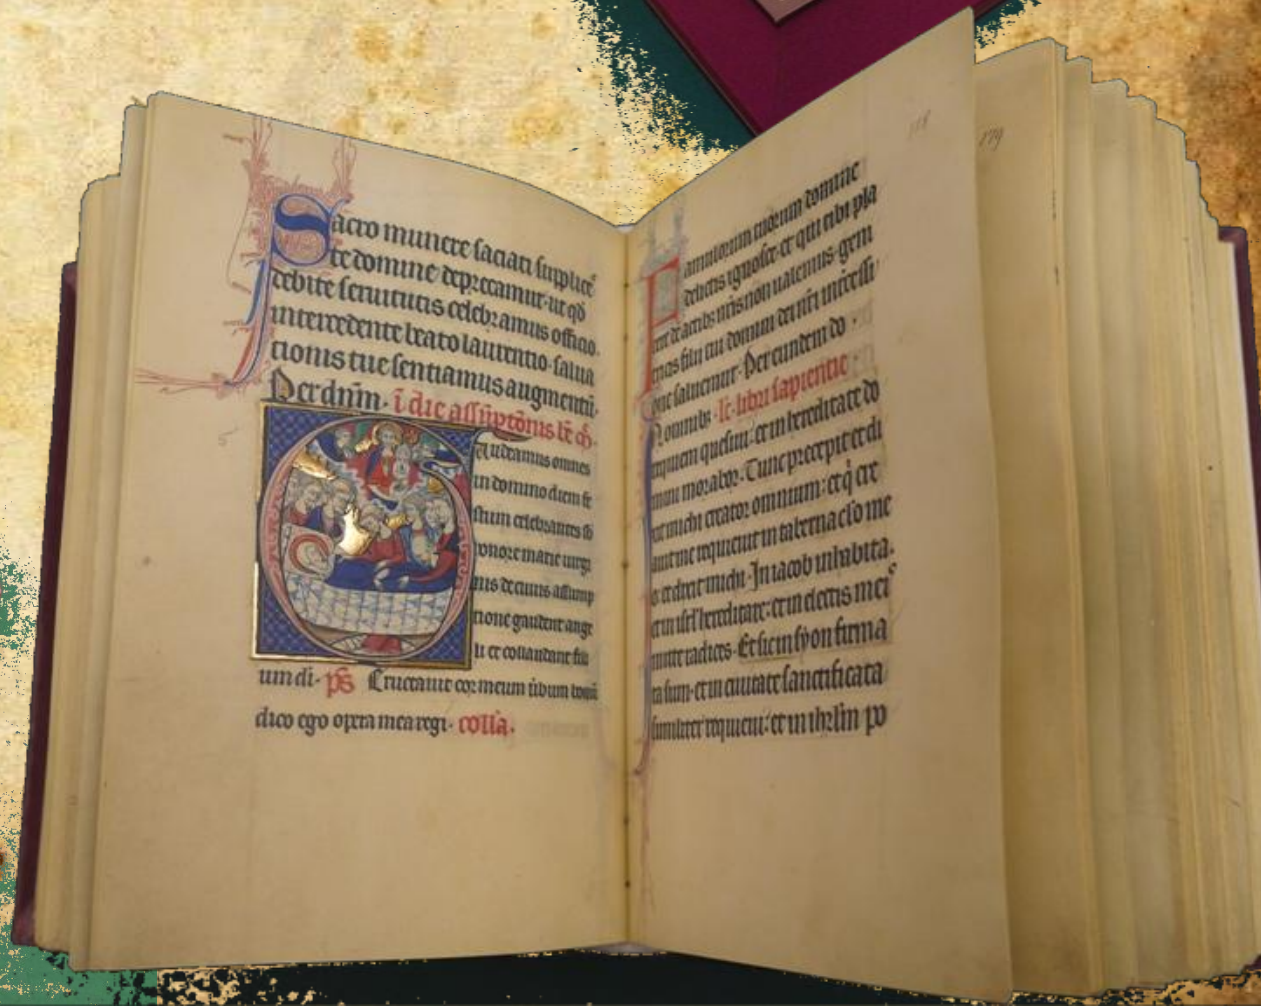 Sacro munere saciati supplices
te domine deprecamur ut qd
debite seruitutis celebramus officio
intercedente beato laurentio salua
tionis tue sentiamus augmentū.
Per dnm. ī die assūptionis be
audeamus omnes
in domino diem fe
stum celebrantes sb
honore marie uirgi
nis de cuius assump
tione gaudent ange
li et collaudant fili
um di. ps Eructauit cor meum ūbum bonū
dico ego opera mea regi. coll̄a.
118
Famulorum tuorum domine
delictis ignosce et qui tibi pla
cere de actibz nr̄is non ualemus gem
tricis filii tui domini dei nr̄i intercessi
one saluemur. Per eundem do
lc̄ libri sapientie
In omnibz requiem quesiui et in hereditate do
mini morabor. Tunc precepit et di
xit michi creator omnium et q̄ cre
auit me requieuit in tabernaclo me
o et dixit michi. In iacob inhabita.
et in isrl hereditare et in electis meis
mitte radices. Et sic in syon firma
ta sum et in ciuitate sanctificata
similiter requieui et in ihrlm po
179